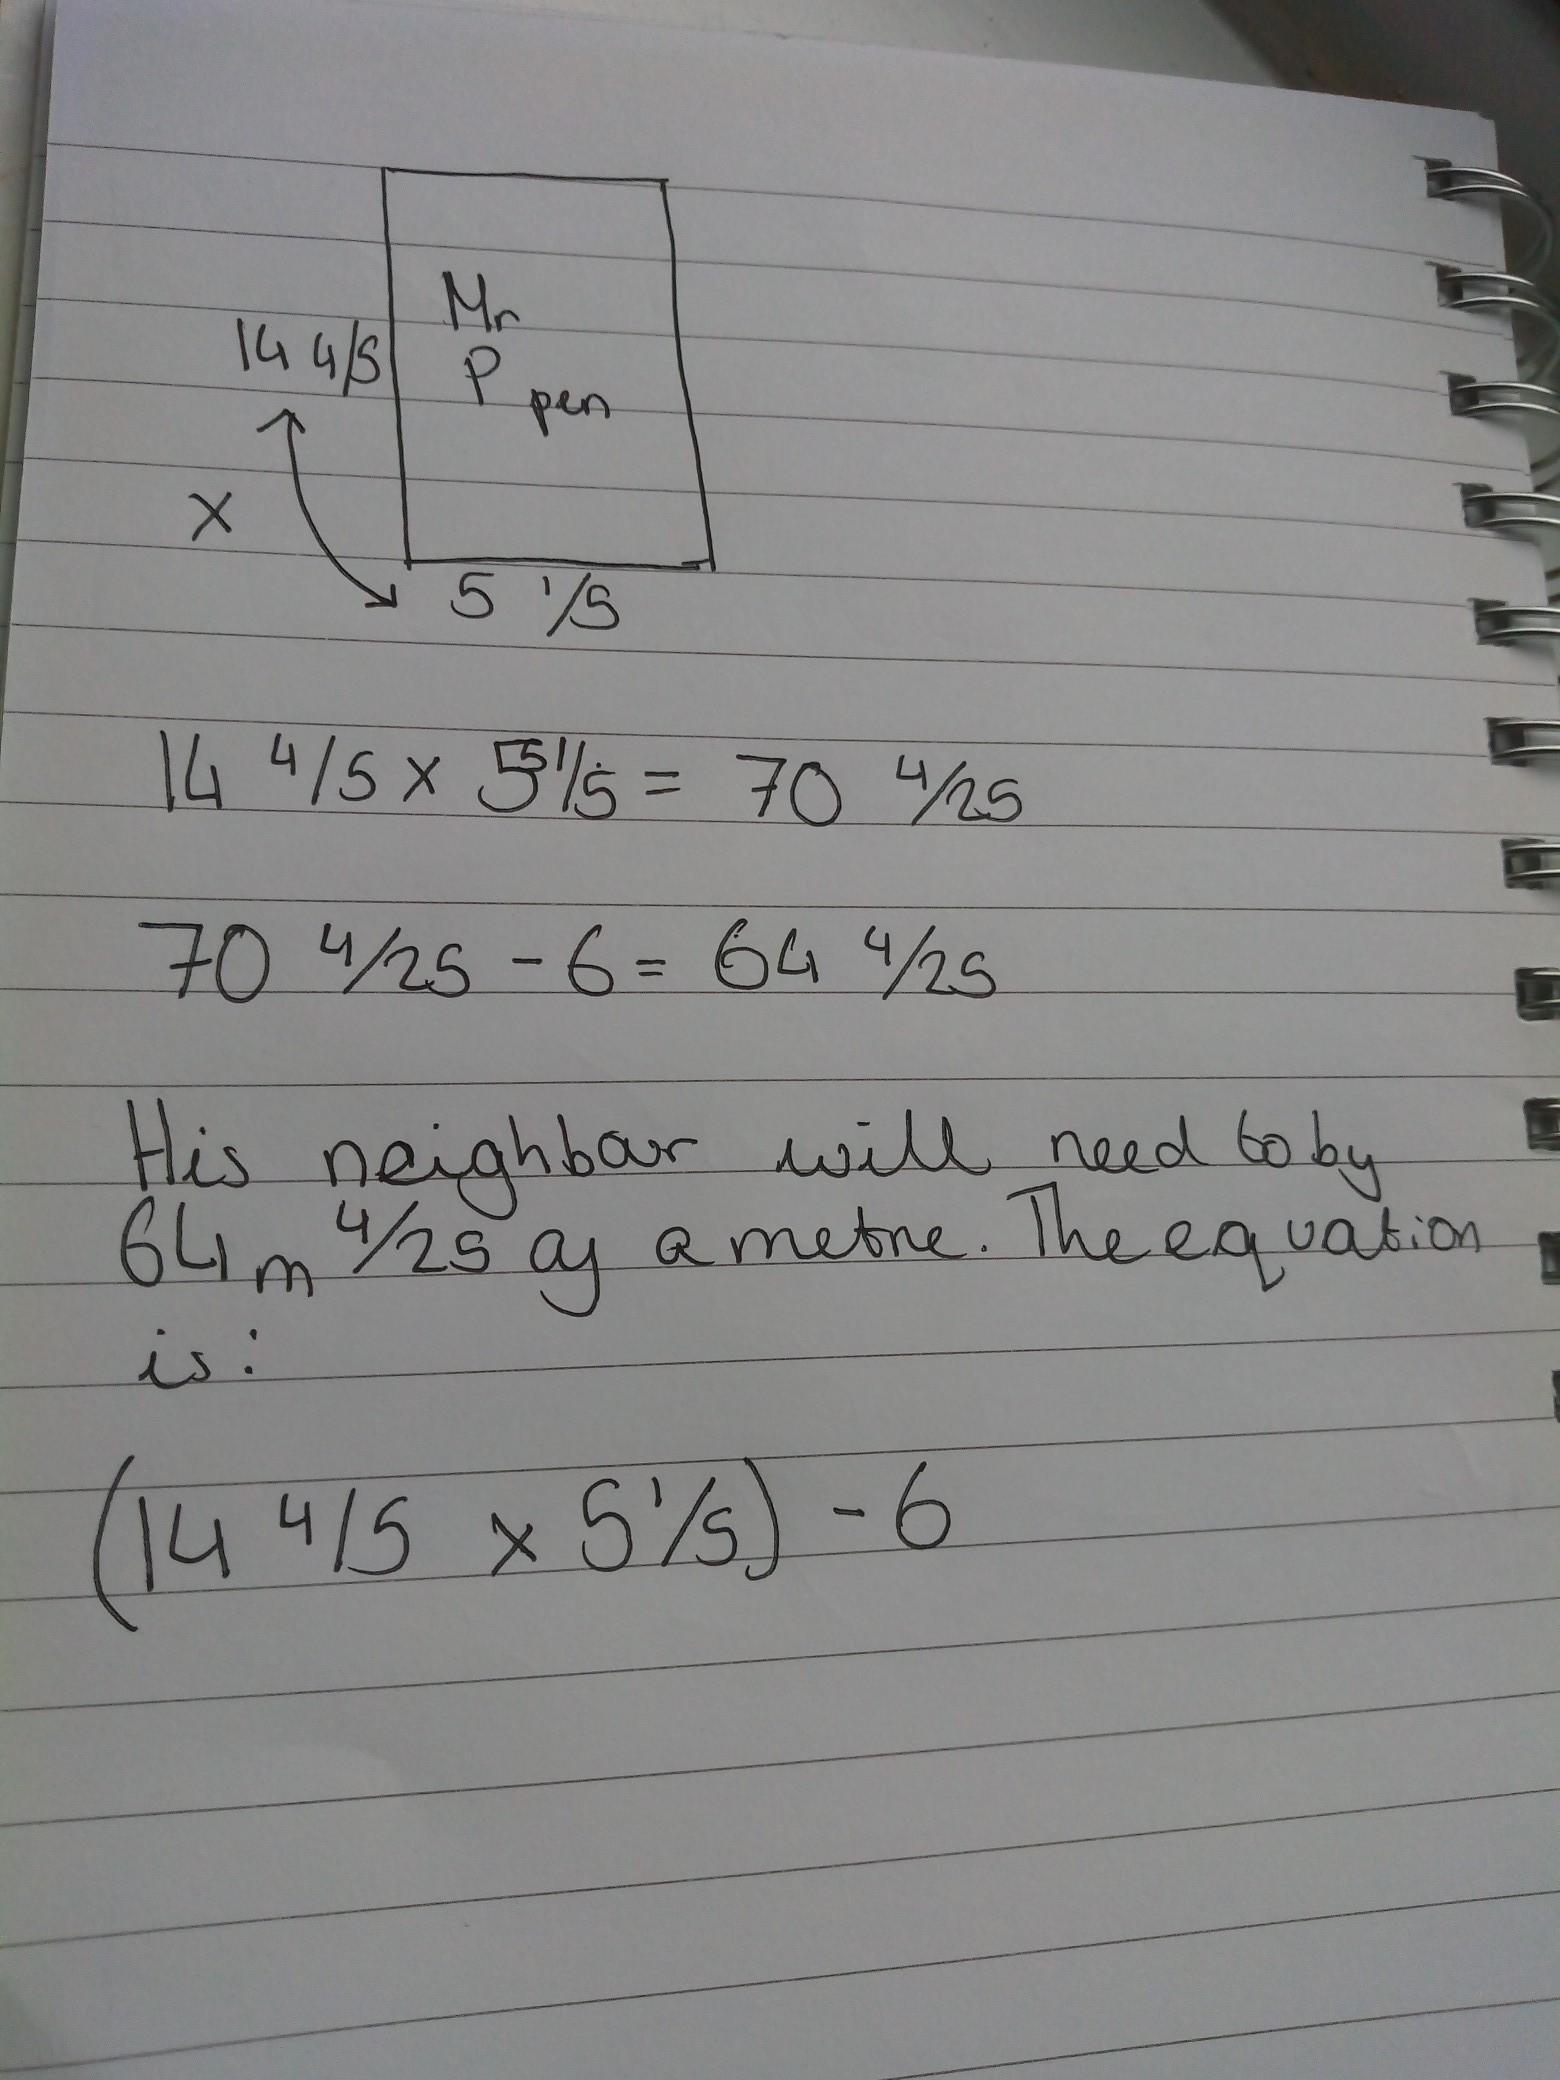 Mr
P pen
14 4/5
X
5 1/5
14 4/5 x 5 1/5 = 70 4/25
70 4/25 - 6 = 64 4/25
His neighbour will need to by
64m 4/25 of a metre. The equation
is:
(14 4/5 x 5 1/5) - 6